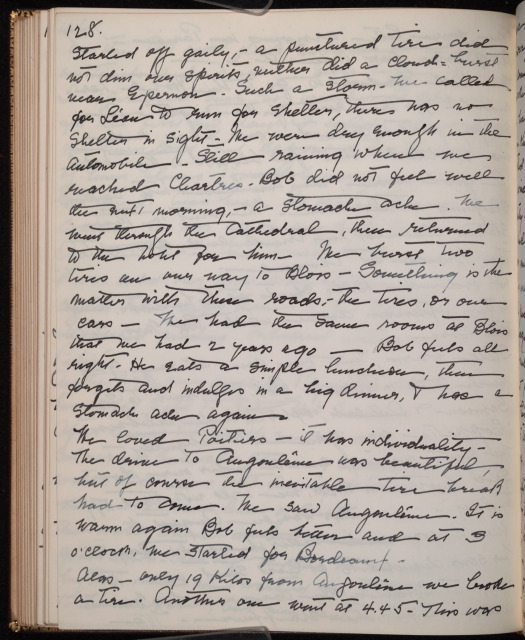 128.
Started off gaily, - a punctured tire did
not dim our spirits, neither did a cloud-burst
near Epernon. Such a storm - We called
for Léon to run for shelter, there was no
shelter in sight - We were dry enough in the
automobile - Still raining when we
reached Chartres - Bob did not feel well
the next morning, - a stomach ache. We
went through the Cathedral, then returned
to the hotel for him - We burst two
tires on our way to Blois - Something is the
matter with these roads, - the tires, or our
cars - We had the same rooms at Blois
that we had 2 years ago - Bob feels all
right. He eats a simple luncheon, then
forgets and indulges in a big dinner, & has a
stomach ache again -
We loved Poitiers - it has individuality -
The drive to Angoulême was beautiful,
but of course the inevitable tire break
had to come. We saw Angoulême. It is
warm again Bob feels better and at 3
o'clock, we started for Bordeaux -
Alas - only 19 kilos from Angoulême we broke
a tire. Another one went at 4.45 - This was